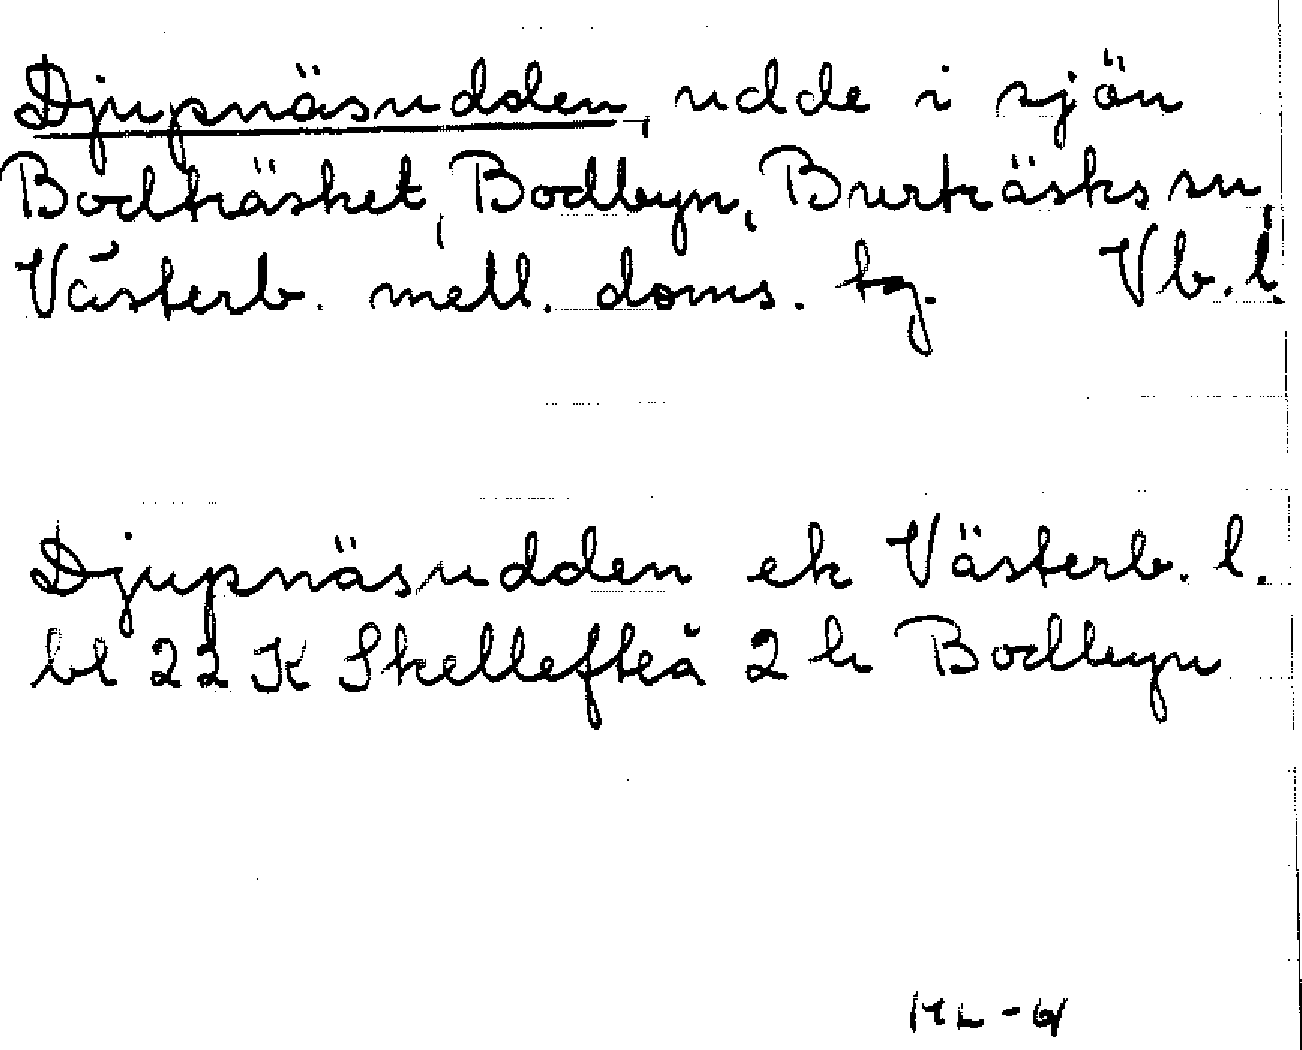 Djupnäsudden, udde i sjön
Bodträsket, Bodbyn, Burträsks sn,
Västerb. mell. doms. tg. Vb. l.
Djupnäsudden ek Västerb. l.
bl 22 K Skellefteå 2 h Bodbyn